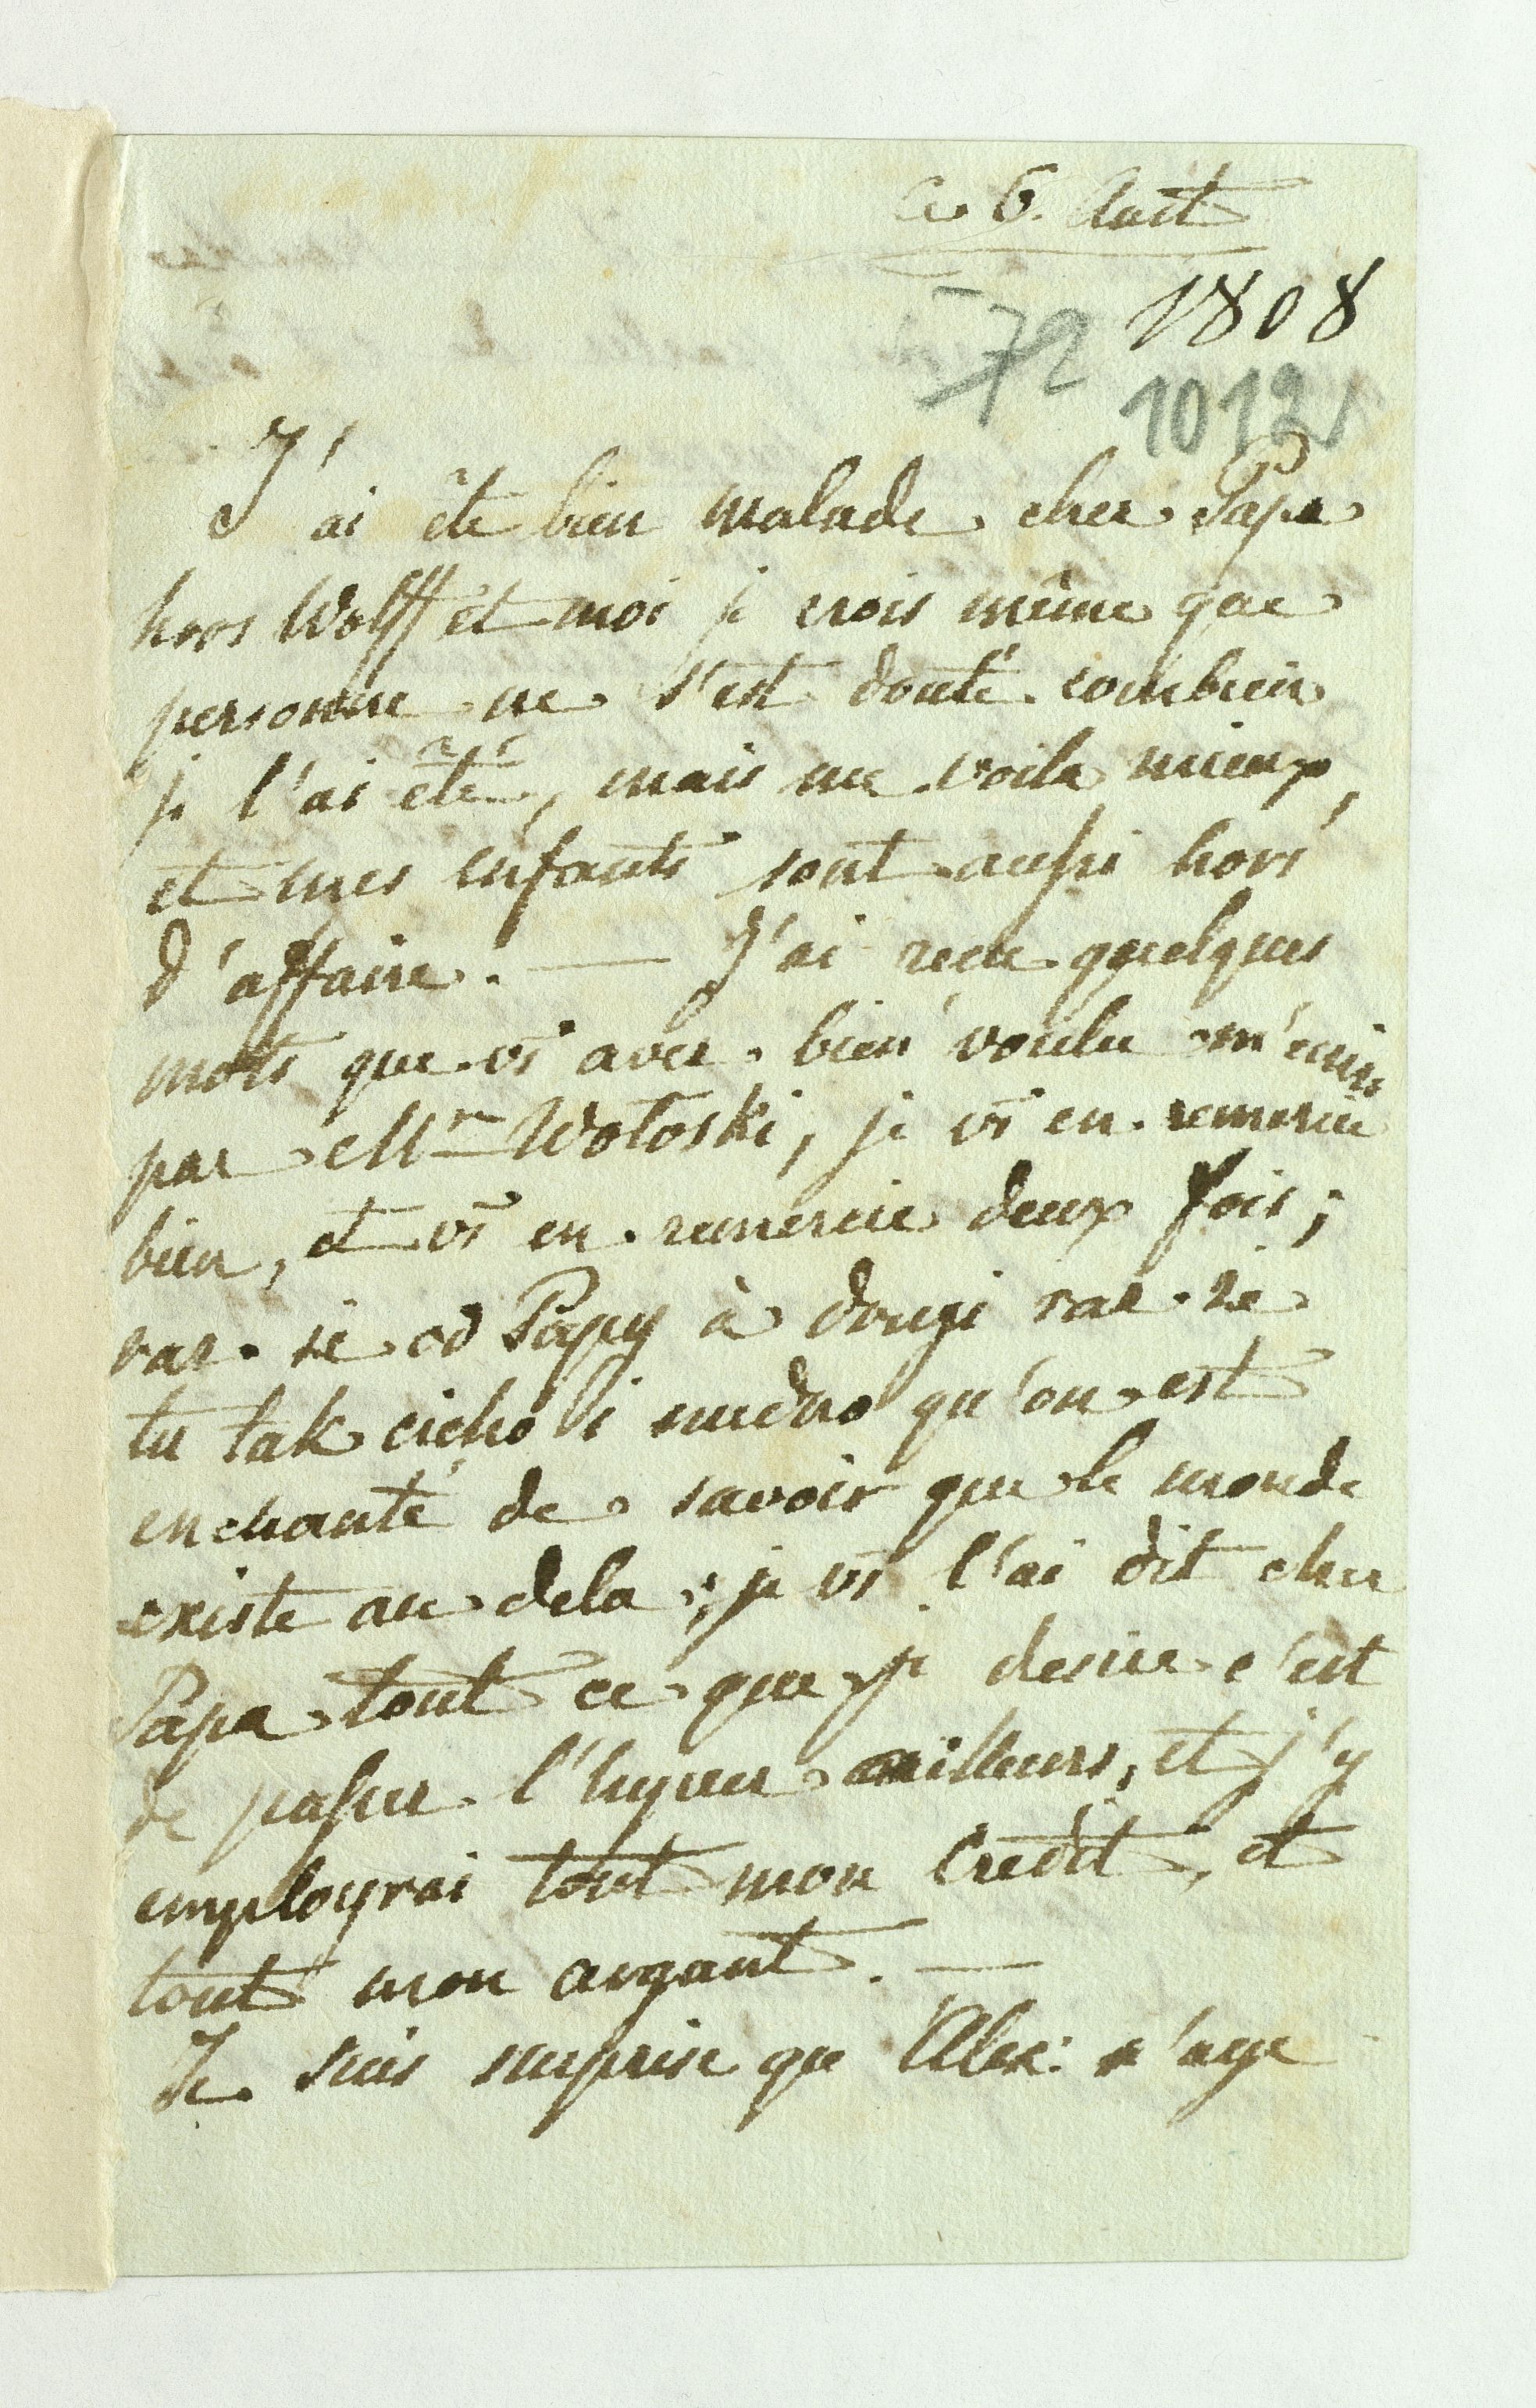 Ce 6. Aout
1808
572
1012
J'ai été bien malade cher Papa
hors Wolff et moi je crois même que
personne ne s'est douté combien
je l'ai été, mais me voila mieux,
et mes enfants sont aussi hors
d'affaire. — J'ai recu quelques
mots que vs avez bien voulu m'ecrire
par Mr Wotoski, je vs en remercie
bien, et vs en remercie deux fois;
raz że od Papy à drugi raz że
tu tak cicho i nudno qu'on est
enchanté de savoir que le monde
existe au dela; je vs l'ai dit cher
Papa tout ce que je desire c'est
de passer l'hyver ailleurs, et j'y
employrai tout mon Credit, et
tout mon argant. —
Je suis surprise que Alex: n'aye